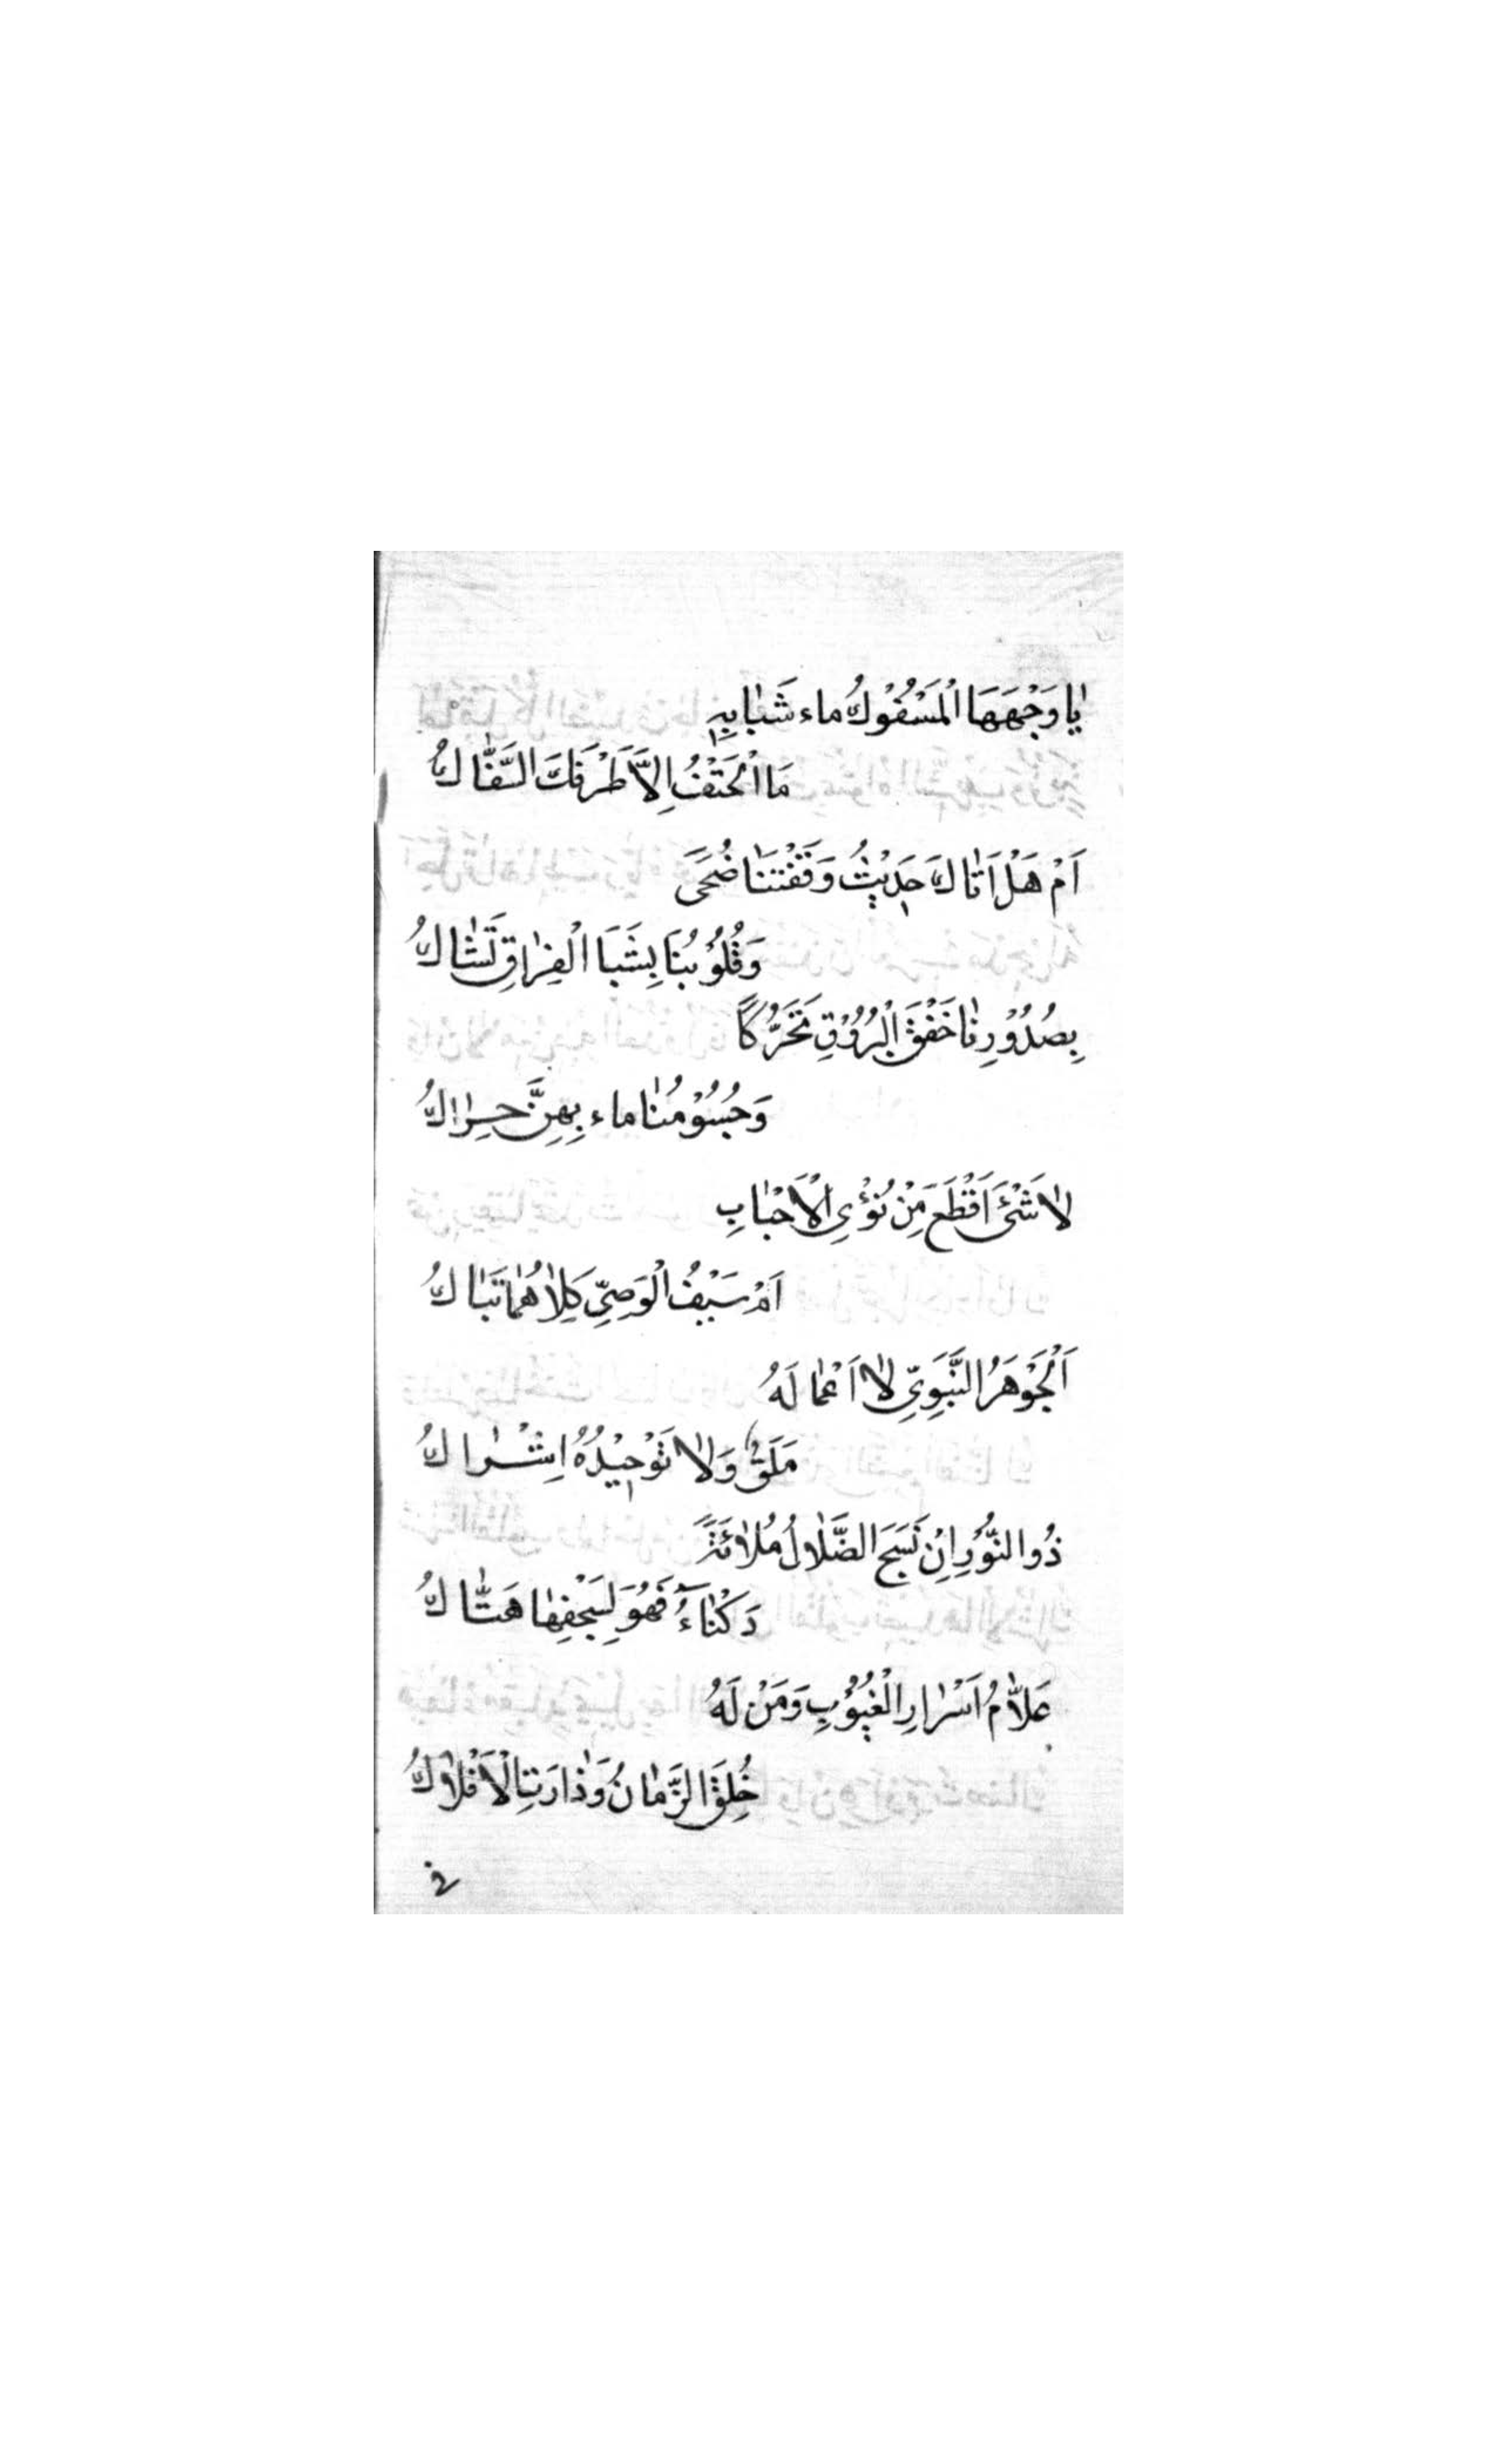 يٰا وَجْهَهَا الْمَسْفُوْكُ ماء شَبٰابِهِ
مَا الْحَتْفُ اِلاَّ طَرْفَكَ السَّفّٰاكُ
اَمْ هَلْ اَتٰاكَ حَدِيْثُ وَقْفَتِنٰا ضُحَىً
وَقُلُوْبُنَا بِشَبَا الْفِرٰاقِ تَشٰاكُ
بِصُدُوْرِنٰا خَفْقَ الْبُرُوْقِ تَحَرُّكاً
وَجُسُوْمُنٰا ماء بِهِنَّ حِرٰاكُ
لاٰ شَىْءَ اَقْطَعَ مِنْ نُؤْىِ الْاَحْبٰابِ
اَمْ سَيْفُ الْوَصِىِّ كِلاٰهُمٰا تَبّٰاكُ
اَلْجَوْهَرُ النَّبَوِىِّ لاٰ اَعْمٰالَهُ
مَلَقٌ وَلاٰ تَوْحِيْدُهُ اِشْرٰاكُ
ذُوا النُّوْرِ اِنْ نَسَجَ الضَّلاٰلُ مُلاٰئَةً
دَكْنٰاءَ فَهُوَ لِسَجْفِهٰا هَتّٰاكُ
عَلاّٰمُ اَسْرٰارِ الْغُيُوْبِ وَمَنْ لَهُ
خُلِقَ الزَّمٰانُ وَدٰارَتِ الْاَفْلاٰكُ